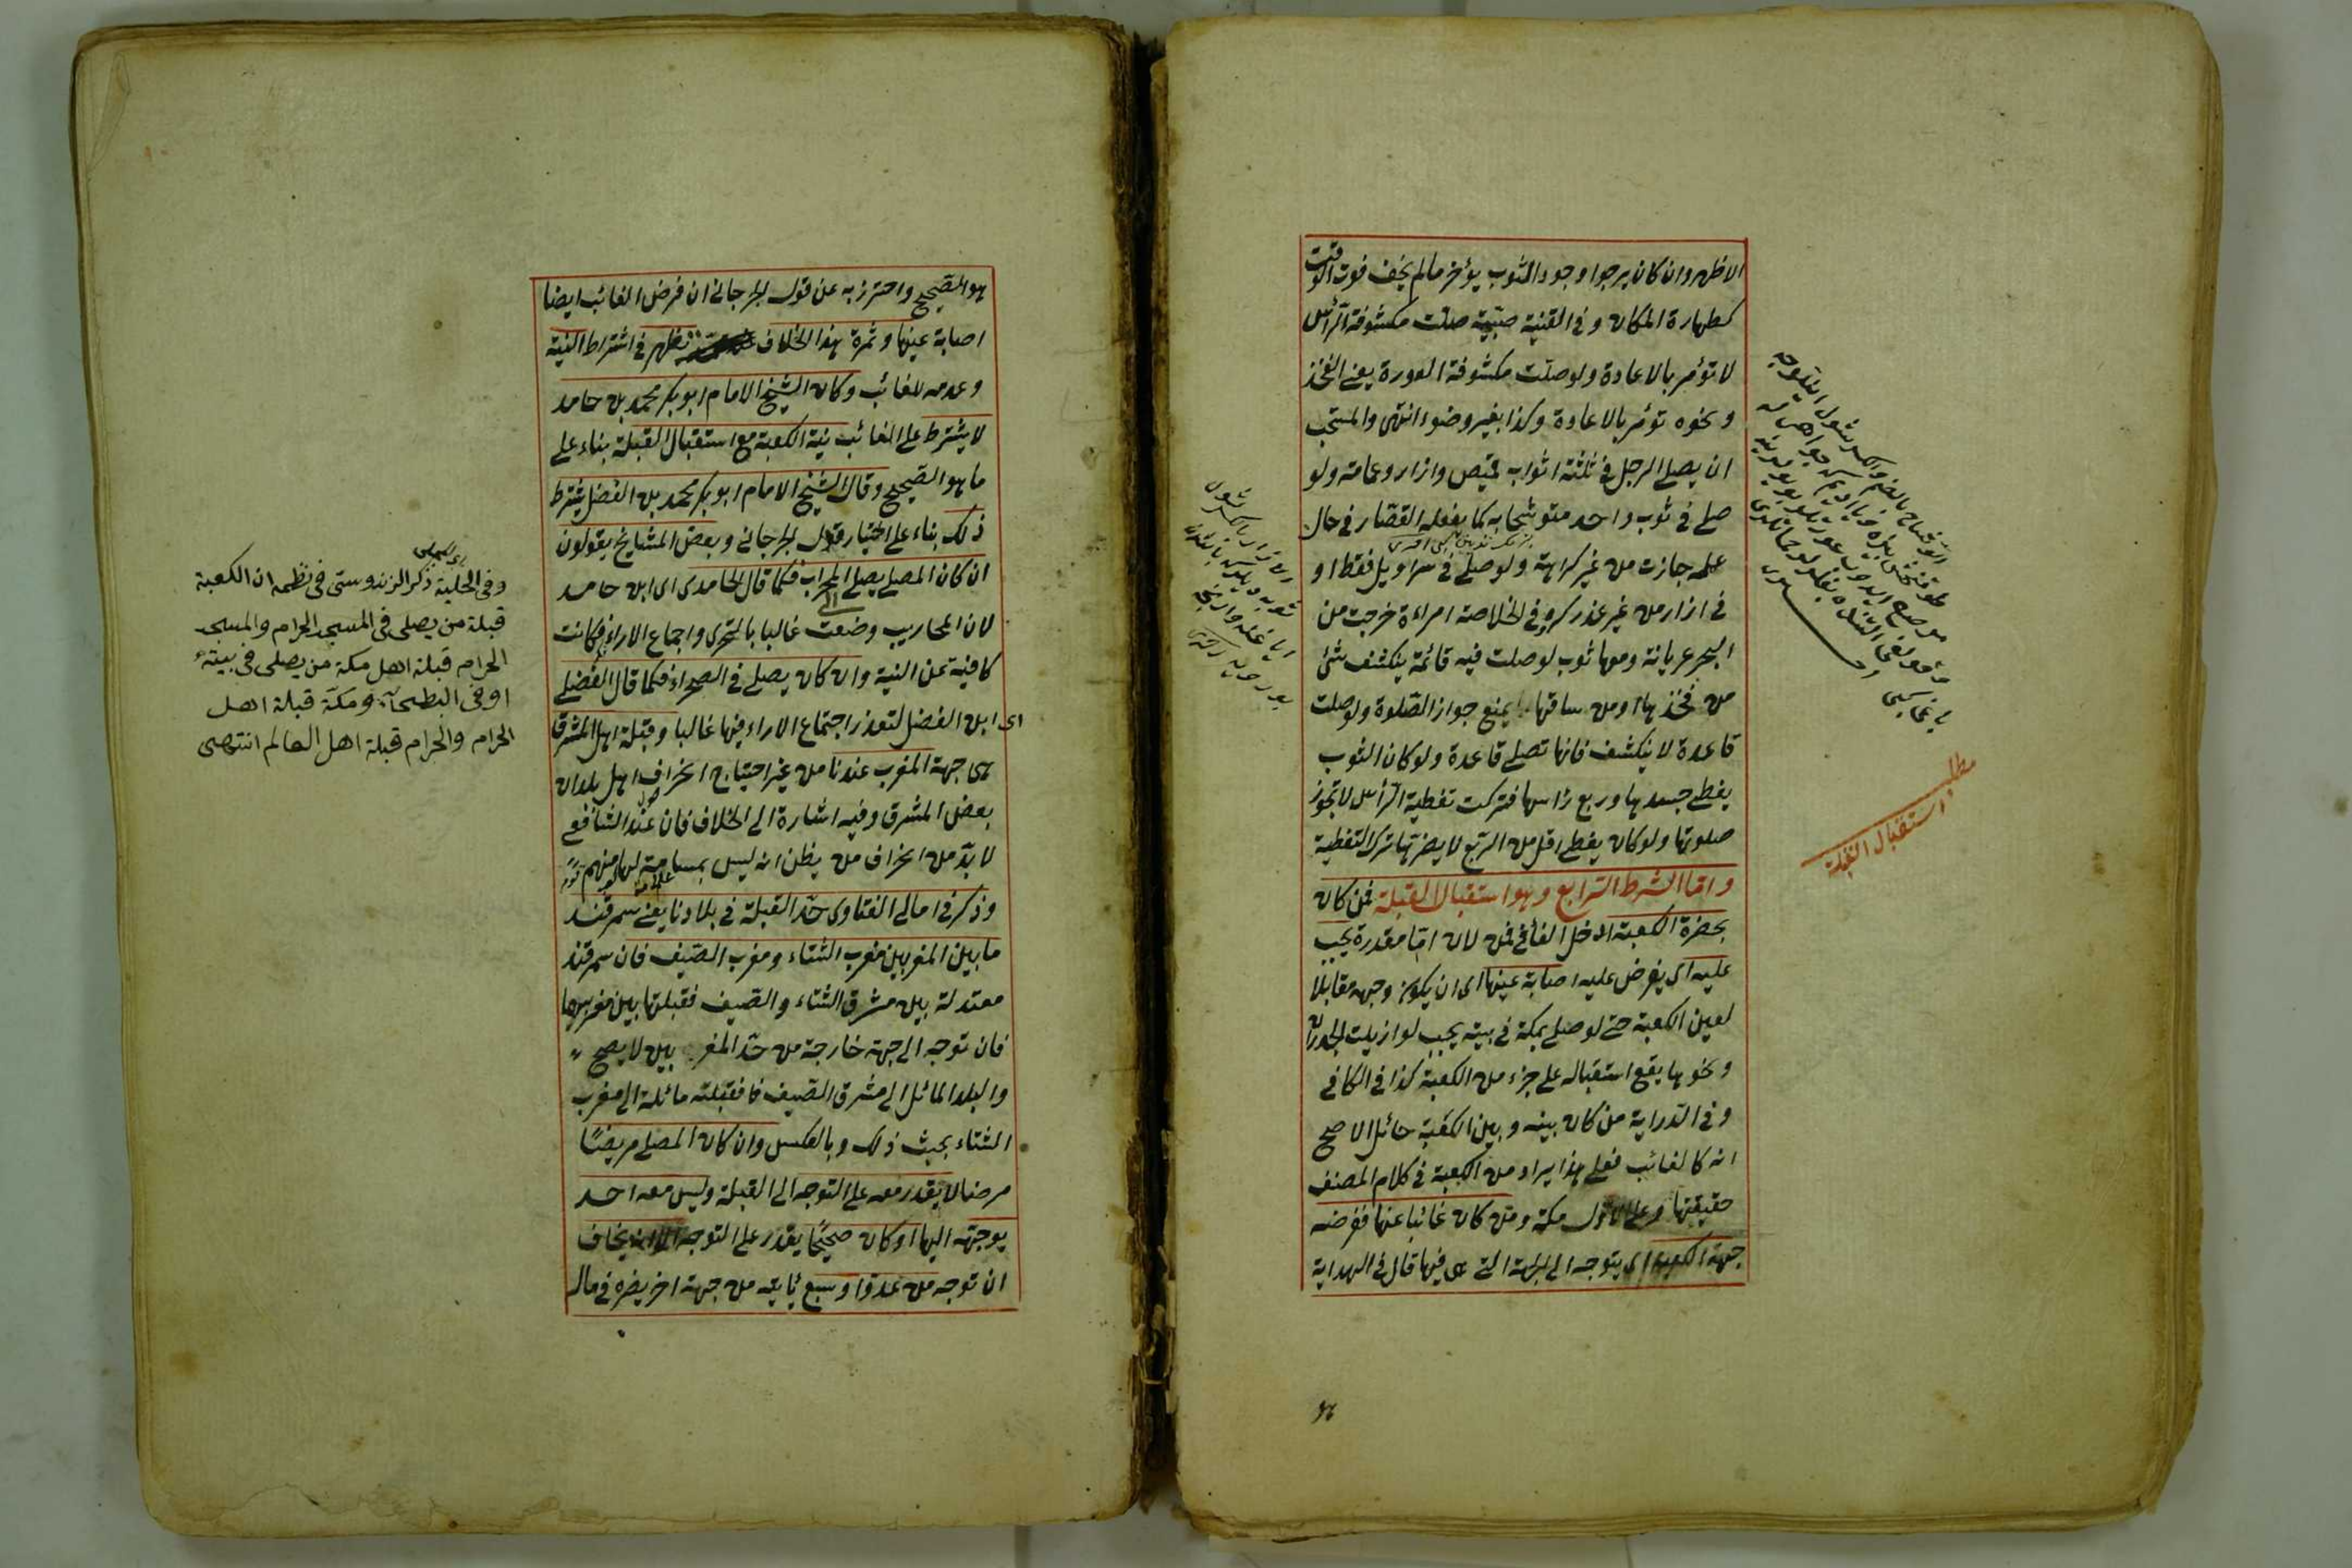 الاظهر وان كان يرجوا وجود الثوب يؤخر مالم يخف فوت الوقت
كطهارة المكان وفى القنية صبية صلت مكشوفة الرأس
لا تؤمر بالاعادة ولو صلت مكشوفة العورة يعنى الفخذ
ونحوه تؤمر بالاعادة وكذا بغير وضوء انتهى والمستحب
ان يصلى الرجل فى ثلثة اثواب قميص وازار وعمامة ولو
صلى فى ثوب واحد متوشحا به كما يفعله القصار فى حال
عمله جازت من غير كراهة ولو صلى فى سراويل فقط او
فى ازار من غير عذر كره وفى الخلاصة امراءة خرجت من
البحر عريانة ومعها ثوب لو صلت فيه قائمة ينكشف شئ
من فخذها او من ساقها يمنع جواز الصلوة ولو صلت
قاعدة لا ينكشف فانها تصلى قاعدة ولو كان الثوب
يغطى جسدها وربع رأسها فتركت تغطية الرأس لا تجوز
صلوتها ولو كان يغطى اقل من الربع لا يضرها ترك التغطية
واما الشرط الرابع وهو استقبال القبلة فمن كان
بحضرة الكعبة يجب
عليه اى يفرض عليه اصابة عينها اى ان يكون وجهه مقابلا
لعين الكعبة حتى لو صلى بمكة فى بيته يجب لو ازيلت الجدران
ونحوها يقع استقباله على جزء من الكعبة كذا فى الكافى
وفى الدراية من كان بينه وبين الكعبة حائل الاصح
انه كالغائب فعلى هذا يراد من الكعبة فى كلام المصنف
حقيقتها وعلى الاول مكة ومن كان غائبا عنها ففرضه
جهة الكعبة اى يتوجه الى الجهة التى هى فيها قال فى الهداية
هو
مطلب
استقبال القبلة
هو الصحيح واحترز به عن قول الجرجانى ان فرض الغائب ايضا
اصابة عينها وثمرة هذا الخلاف تظهر فى اشتراط النية
وعدمه للغائب وكان الشيخ الامام ابو بكر محمد بن حامد
لا يشترط على الغائب نية الكعبة مع استقبال القبلة بناء على
ما هو الصحيح وقال الشيخ الامام ابو بكر محمد بن الفضل يشترط
ذلك بناء على اختيار قول الجرجانى وبعض المشايخ يقولون
ان كان المصلى يصلى الى المحراب فكما قال الحامدى اى ابن حامد
لان المحاريب وضعت غالبا بالتحرى واجماع الاراء فكانت
كافية عن النية وان كان يصلى فى الصحراء فكما قال الفضلى
اى ابن الفضل لتعذر اجتماع الاراء فيها غالبا وقبلة اهل المشرق
هى جهة المغرب عندنا من غير احتياج انحراف اهل بلدان
بعض المشرق وفيه اشارة الى الخلاف فان عند الشافعى
لا بد من انحراف من يظن انه ليس بمسامتة لها منهم
وذكر فى امالى الفتاوى حد القبلة فى بلادنا يعنى سمرقند
ما بين المغربين مغرب الشتاء ومغرب الصيف فان سمرقند
معتدلة بين مشرق الشتاء والصيف فقبلتها بين مغربيهما
فان توجه الى جهة خارجة من حد المغربين لا يصح
والبلد المائل الى مشرق الصيف فقبلته مائلة الى مغرب
الشتاء بحيث ذلك وبالعكس وان كان المصلى مريضا
مرضا لا يقدر معه على التوجه الى القبلة وليس معه احد
يوجهه اليها او كان صحيحا يقدر على التوجه الا انه يخاف
ان توجه من عدو او سبع يأتيه من جهة اخر يضره فى مال
وفى الحلية ذكر الزندوستى فى نظمه ان الكعبة
قبلة من يصلى فى المسجد الحرام والمسجد
الحرام قبلة اهل مكة من يصلى فى بيته
او فى البطحآء ومكة قبلة اهل
الحرام والحرام قبلة اهل العالم انتهى